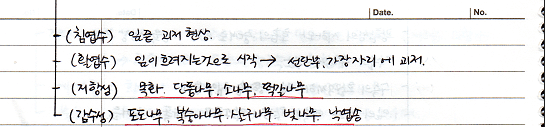 Date. No.
- (침엽수) 잎끝 괴저 현상.
- (활엽수) 잎이 흐려지는것으로 시작 → 선란부, 가장자리에 괴저.
- (저항성) 목화, 단풍나무, 소나무, 떡갈나무
- (감수성) 포도나무, 복숭아나무, 살구나무, 벚나무, 낙엽송